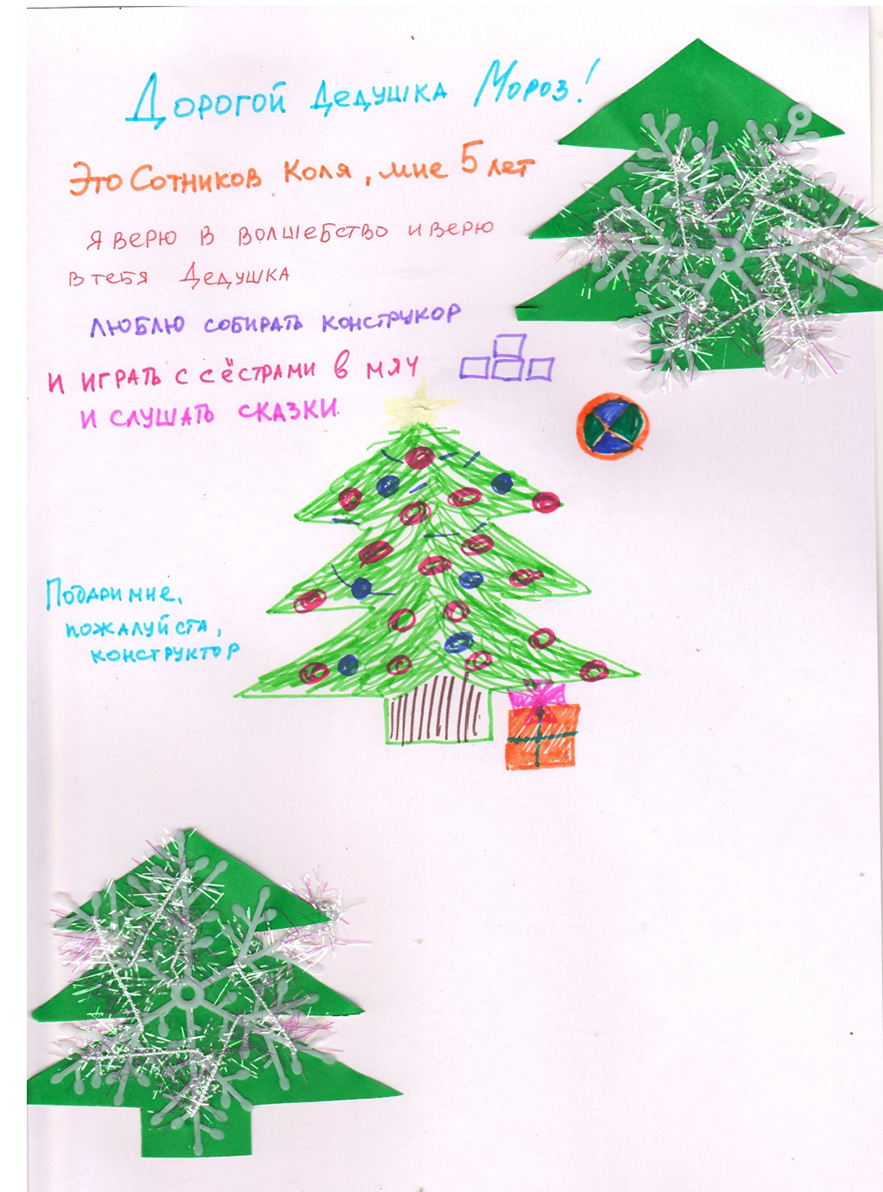 Дорогой Дедушка Мороз!
Это Сотников Коля, мне 5 лет
Я верю в волшебство и верю
в тебя Дедушка
Люблю собирать конструкор
и играть с сёстрами в мяч
и слушать сказки
Подари мне,
пожалуйста,
конструктор